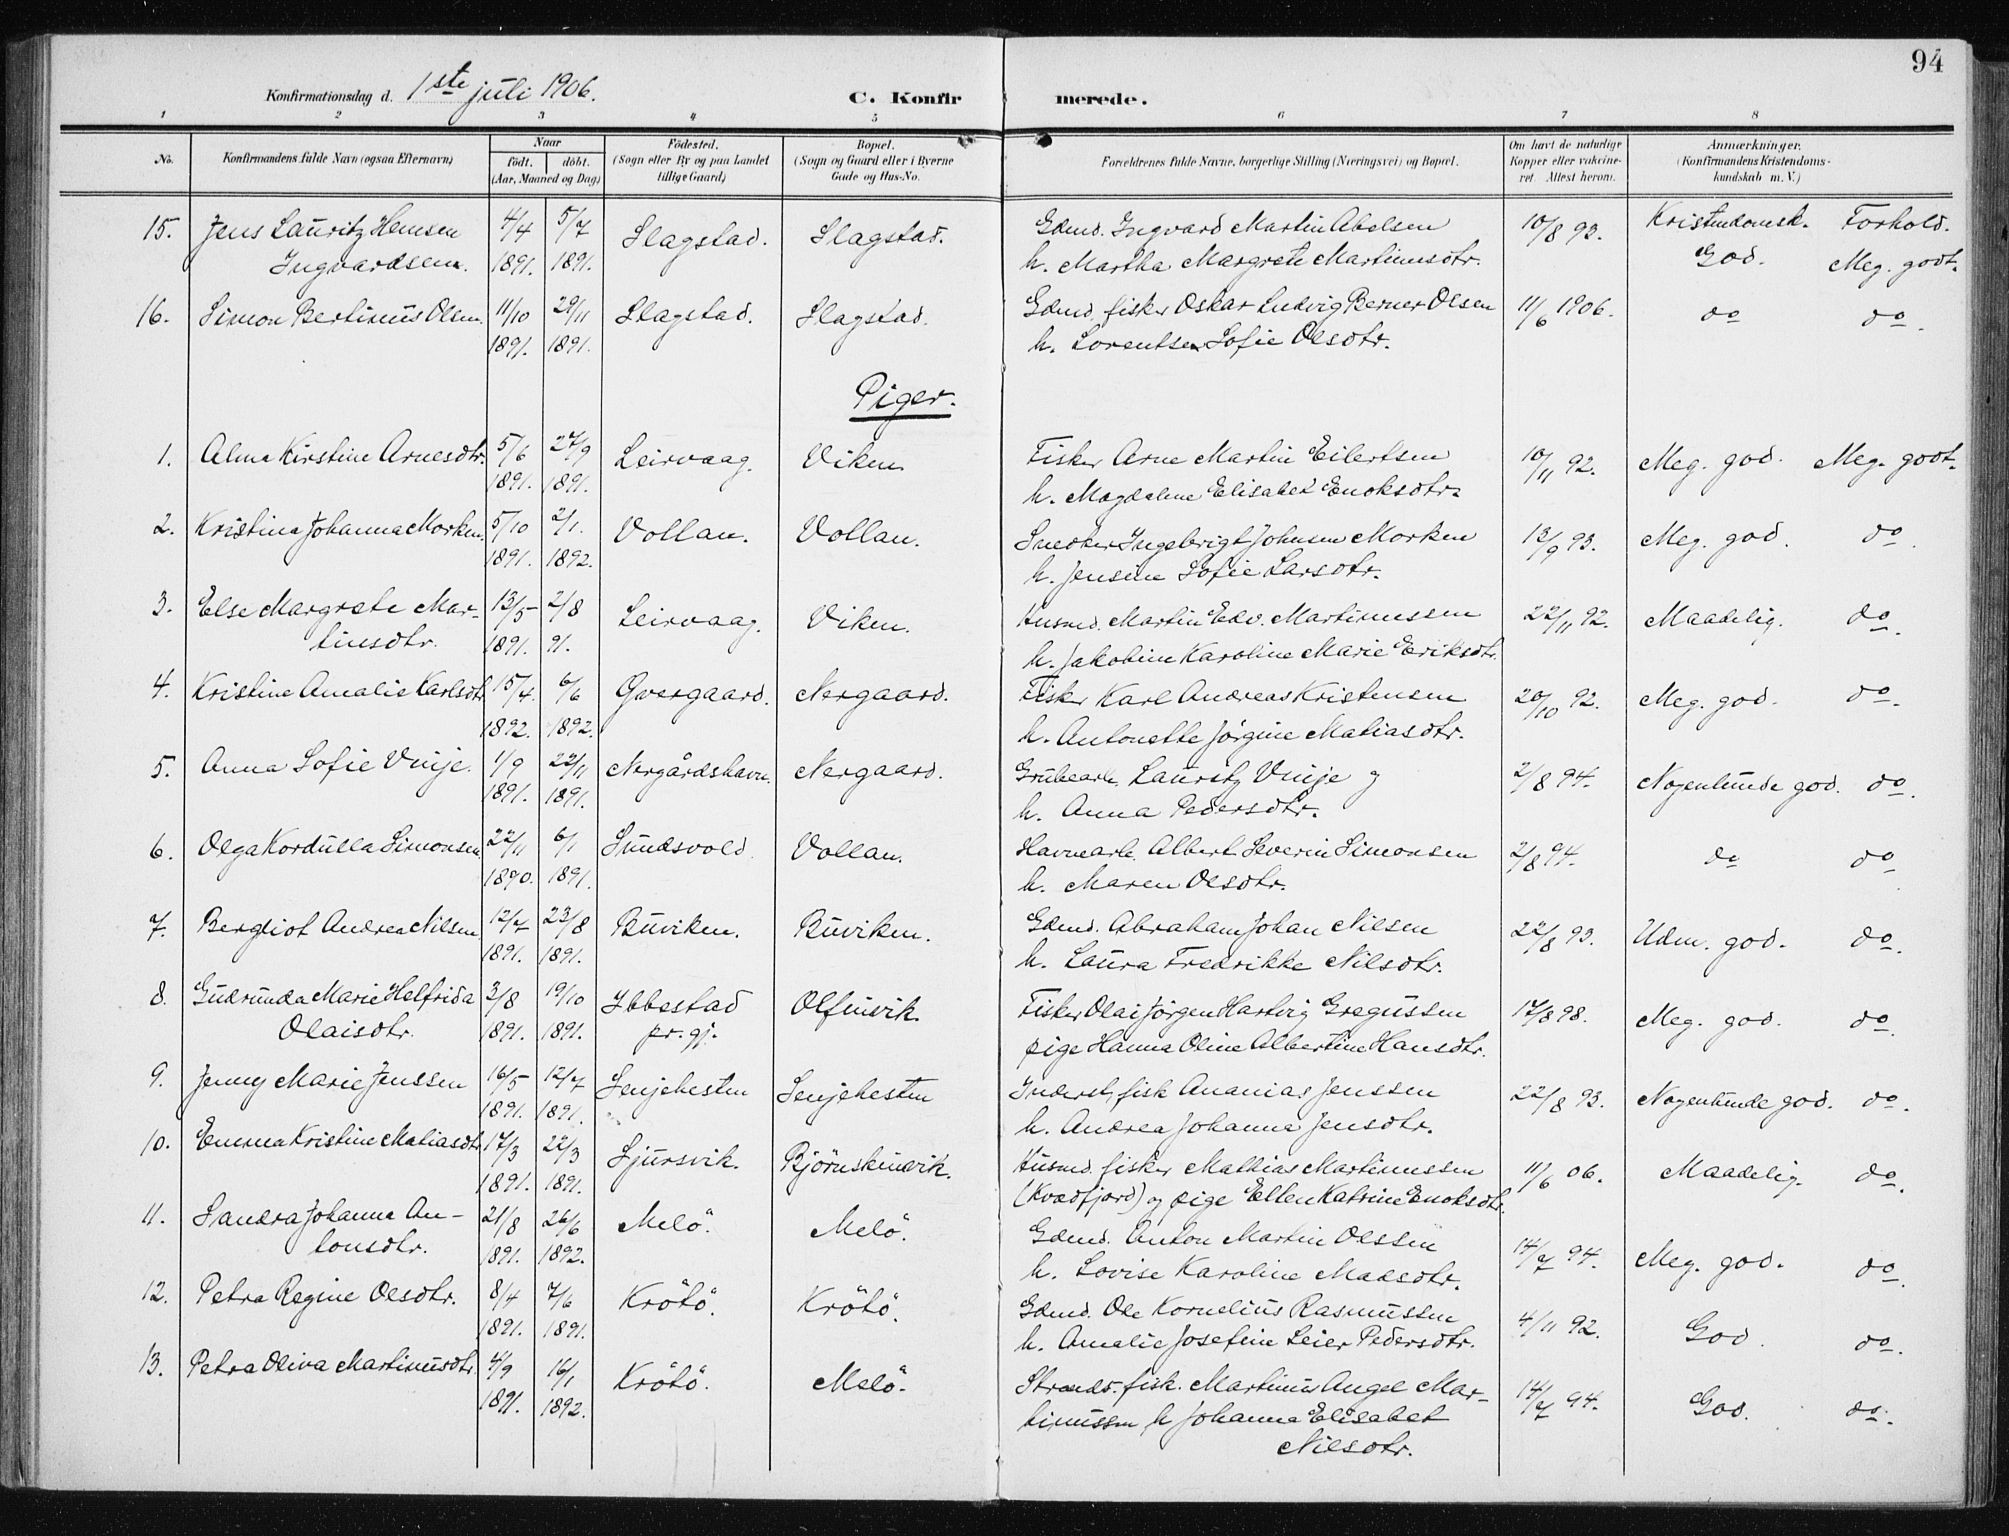 94
Konfirmationsdag d. 1ste juli 1906.
C. Konfirmerede.
1 2 3 4 5 6 7 8
No.
Konfirmandens fulde Navn (ogsaa Efternavn)
Naar
födt. döbt.
(Aar, Maaned og Dag)
Födested.
(Sogn eller By og paa Landet
tillige Gaard)
Bopæl.
(Sogn og Gaard eller i Byerne
Gade og Hus-No.
Forældrenes fulde Navne, borgerlige Stilling (Næringsvei) og Bopæl.
Om havt de naturlige
Kopper eller vakcine-
ret. Attest herom.
Anmærkninger.
(Konfirmandens Kristendoms-
kundskab m. V.)
Kristendomsk. Forhold.
15. Jens Lauritz Hemsen 4/4 5/7 Slagstad. Slagstad. Gdmd. Ingvard Martin Abelsen 10/8 93.
Ingvardsen. 1891. 1891. h. Martha Margrete Martinusdtr. God. Meg. godt.
16. Simon Bertinus Olsen. 11/10 29/11 Slagstad. Slagstad. Gdmd. fisker Oskar Ludvig Berner Olsen 11/6 1906. do do.
1891. 1891. h. Lorentse Sofie Olsdtr.
Piger.
1. Alma Kirstine Arnesdtr. 5/6 27/9 Leirvaag. Viken Fisker Arne Martin Eilertsen 10/11 92. Meg. god. Meg. godt.
1891. 1891. h. Magdalene Elisabet Enoksdtr.
2. Kristina Johanna Morken. 5/10 2/1. Vollan. Vollan. Snedker Ingebrigt Johnsen Morken 13/9 93. Meg. god. do.
1891. 1892. h. Jensine Sofie Larsdtr.
3. Else Margrete Mar- 13/5 2/8 Leirvaag. Viken. Husmd. Martin Edv. Martinussen 22/11 92. Maadelig. do.
tinsdtr. 1891. 91. h. Jakobine Karoline Marie Eriksdtr.
4. Kristine Amalie Karlsdtr. 15/4. 6/6 Øvergaard. Nergaard. Fisker Karl Andreas Kristensen 20/10 92. Meg. god. do.
1892. 1892. h. Antonette Jørgine Matiasdtr.
5. Anna Sofie Vinje. 1/9 22/11 Nergårdshavn. Nergaard. Grubearb. Lauritz Vinje og 2/8 94. Nogenlunde god. do.
1891. 1891. h. Anna Pedersdtr.
6. Olga Kordulla Simonsen 22/11 6/1 Sundsvold. Vollan. Havnearb. Albert Severin Simonsen 2/8 94. do do
1890. 1891. h. Maren Olsdtr.
7. Bergliot Andrea Nilsen. 12/7 23/8 Buviken. Buviken. Gdmd. Abraham Johan Nilsen 22/8 93. Udm. god. do.
1891. 1891. h. Laura Fredrikke Nilsdtr.
8. Gudrunda Marie Helfrida 3/8 19/10 Ibbestad Olfinvik. Fisker Olai Jörgen Hartvig Gregussen 17/8 98. Meg. god. do.
Olaisdtr. 1891. 1891. pr. gj. pige Hanna Oline Albertine Hansdtr.
9. Jenny Marie Jenssen 16/5 12/7 Senjehesten Senjehesten Inderst, fisk Ananias Jenssen 22/8 93. Nogenlunde god. do.
1891. 1891. h. Andrea Johanna Jensdtr.
10. Emma Kristine Matiasdtr. 17/3 22/3 Sjursvik. Björnskindvik. Husmd. fisker Mathias Martinussen 11/6 06. Maadelig. do.
1891. 1891. (Kvædfjord) og pige Ellen Katrine Enoksdtr.
11. Sandra Johanna An- 21/8 26/6 Melö. Melö. Gdmd. Anton Martin Olssen 14/7 94. Meg. god. do.
tonsdtr. 1891. 1892. h. Lovise Karoline Madsdtr.
12. Petra Regine Olsdtr. 8/4 7/6 Krötö. Krötö. Gdmd. Ole Kornelius Rasmussen 4/11 92. God. do.
1891. 1891. h. Amalie Josefine Leier Pedersdtr.
13. Petra Oliva Martinusdtr. 4/9 16/1 Krötö. Melö. Strands. fisk. Martinus Angel Mar- 14/7 94. God. do.
1891. 1892. tinussen h Johanna Elisabet
Nilsdtr.